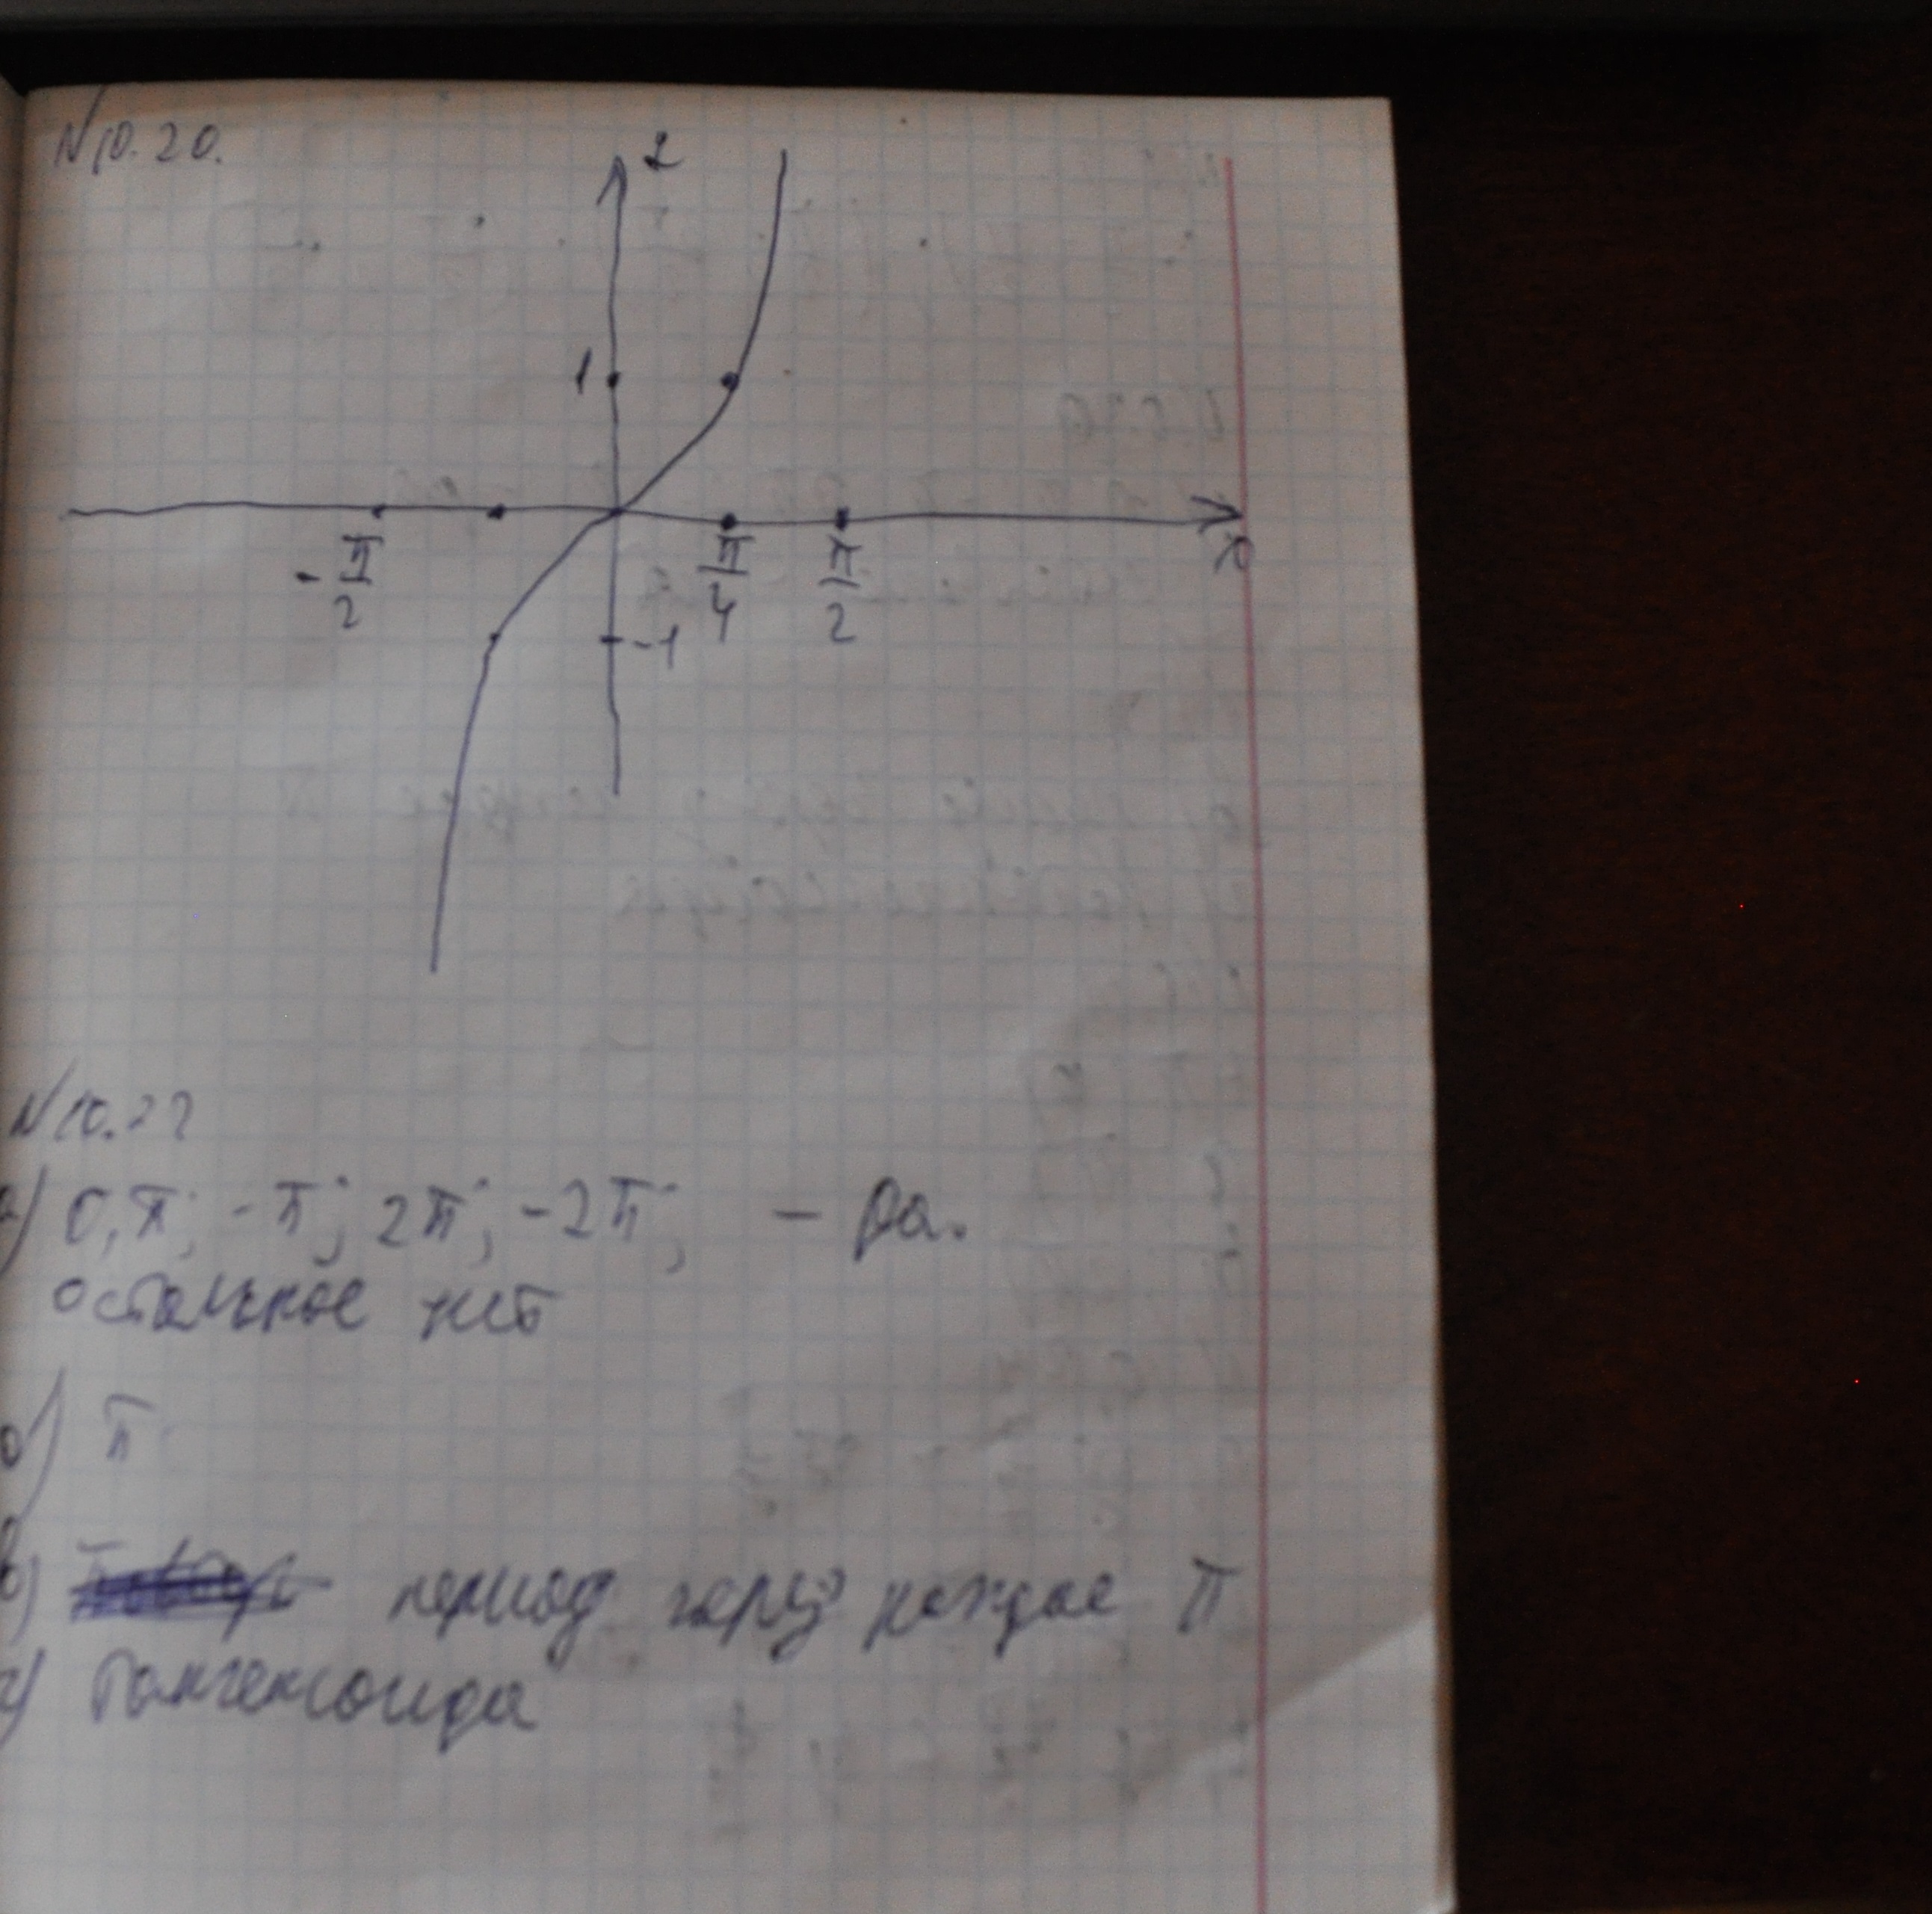 N10.20.
1
-π/2
π/4
π/2
x
-1
N10.22
а) 0, π; -π; 2π; -2π; — Да.
остальное нет
б) π
в) период через каждое π
г) Тангенсоида